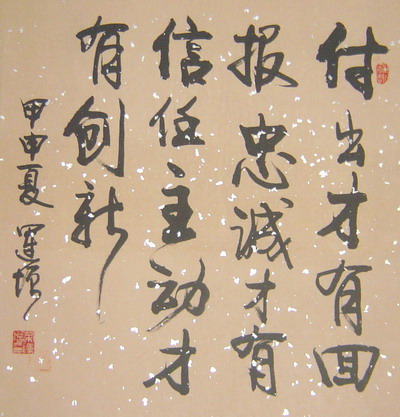 付出才有回
报忠诚才有
信任主动才
有创新
甲申夏运增